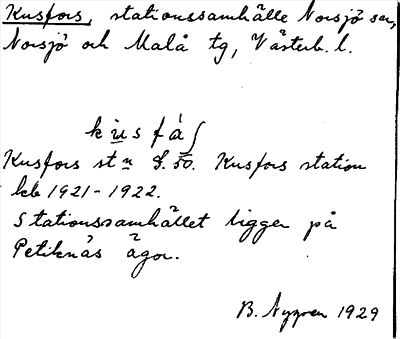 Kusfors, stationssamhälle Norsjö sn,
Norsjö och Malå tg, Västerb. l.
Kusfors stn S. 50. Kusfors station
kbl 1921-1922.
Stationssamhället ligger på
Petiknäs ägor.
B. Nygren 1929